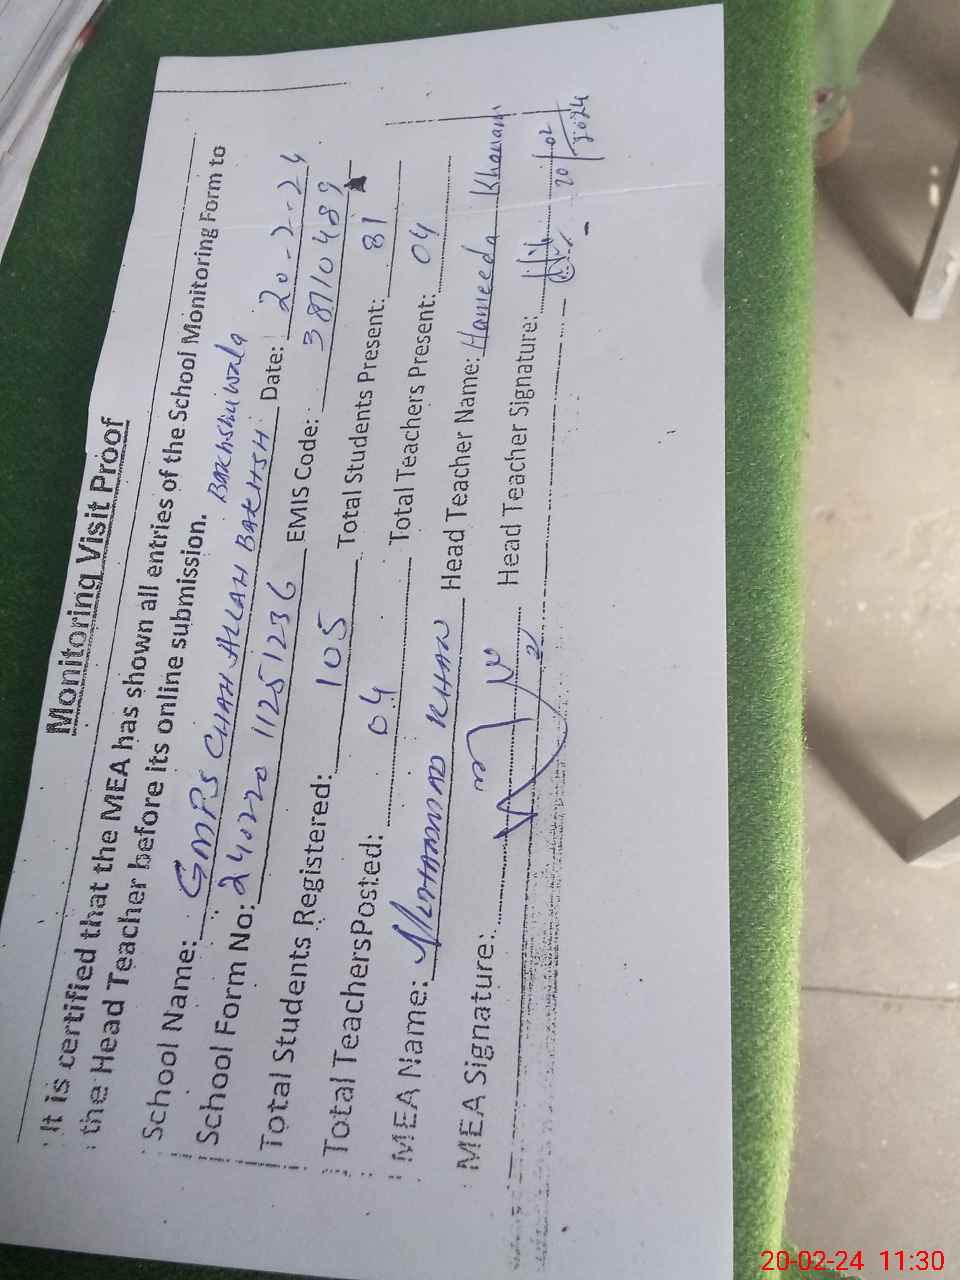 Monitoring Visit Proof
It is certified that the MEA has shown all entries of the School Monitoring Form to
the Head Teacher before its online submission.
School Name: GMPS CHAH ALLAH BAKHSH Bakhshuwala
School Form No: 240220 11251236 Date: 20-2-24
Total Students Registered: 105 EMIS Code: 38110489
Total Teachers Posted: 04 Total Students Present: 81
MEA Name: MUHAMMAD KHAN Total Teachers Present: 04
MEA Signature: Head Teacher Name: Hameeda Khanam
Head Teacher Signature: 20/02/2024
20-02-24 11:30